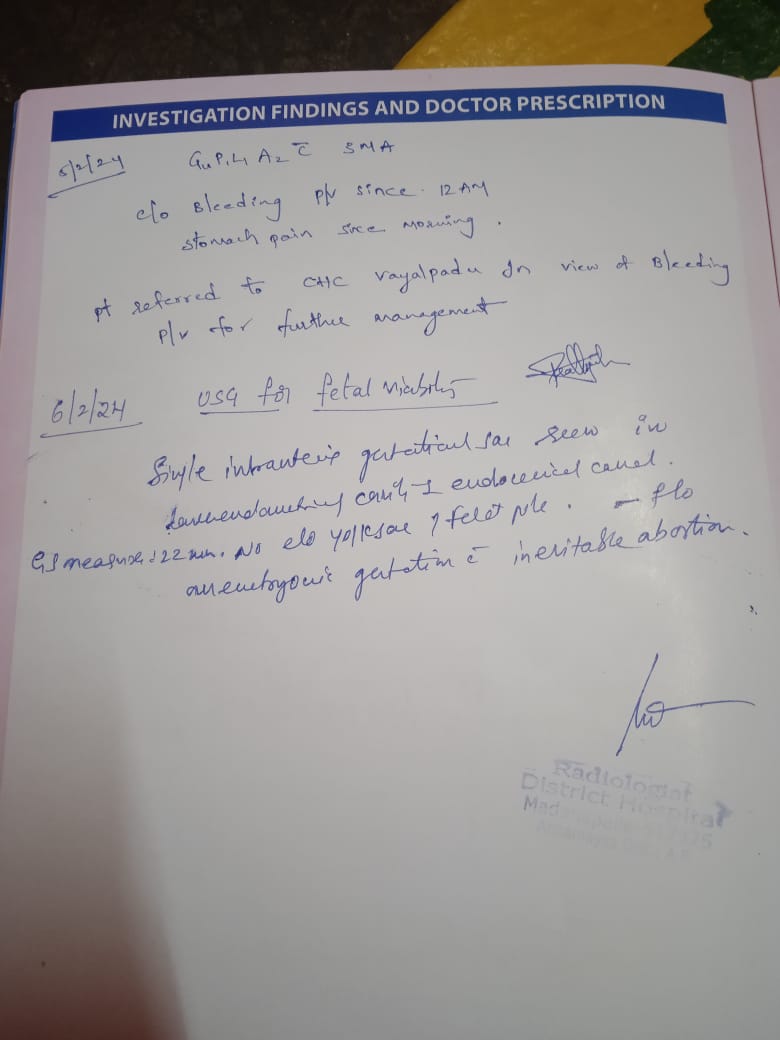 INVESTIGATION FINDINGS AND DOCTOR PRESCRIPTION
5/2/24 G4P1L1A2 c̄ 3MA
c/o Bleeding P/V since 12 AM
stomach pain since morning.
pt referred to CHC vayalpadu In view of Bleeding
P/v for further management
6/2/24 USG for fetal viability
Single intrauterine gestational sac seen in
endometrial cavity & endocervical canal.
GS measures: 22 mm. No e/o yolksac / fetal pole. - f/o
anembryonic gestation c̄ inevitable abortion.
Radiologist
District Hospital